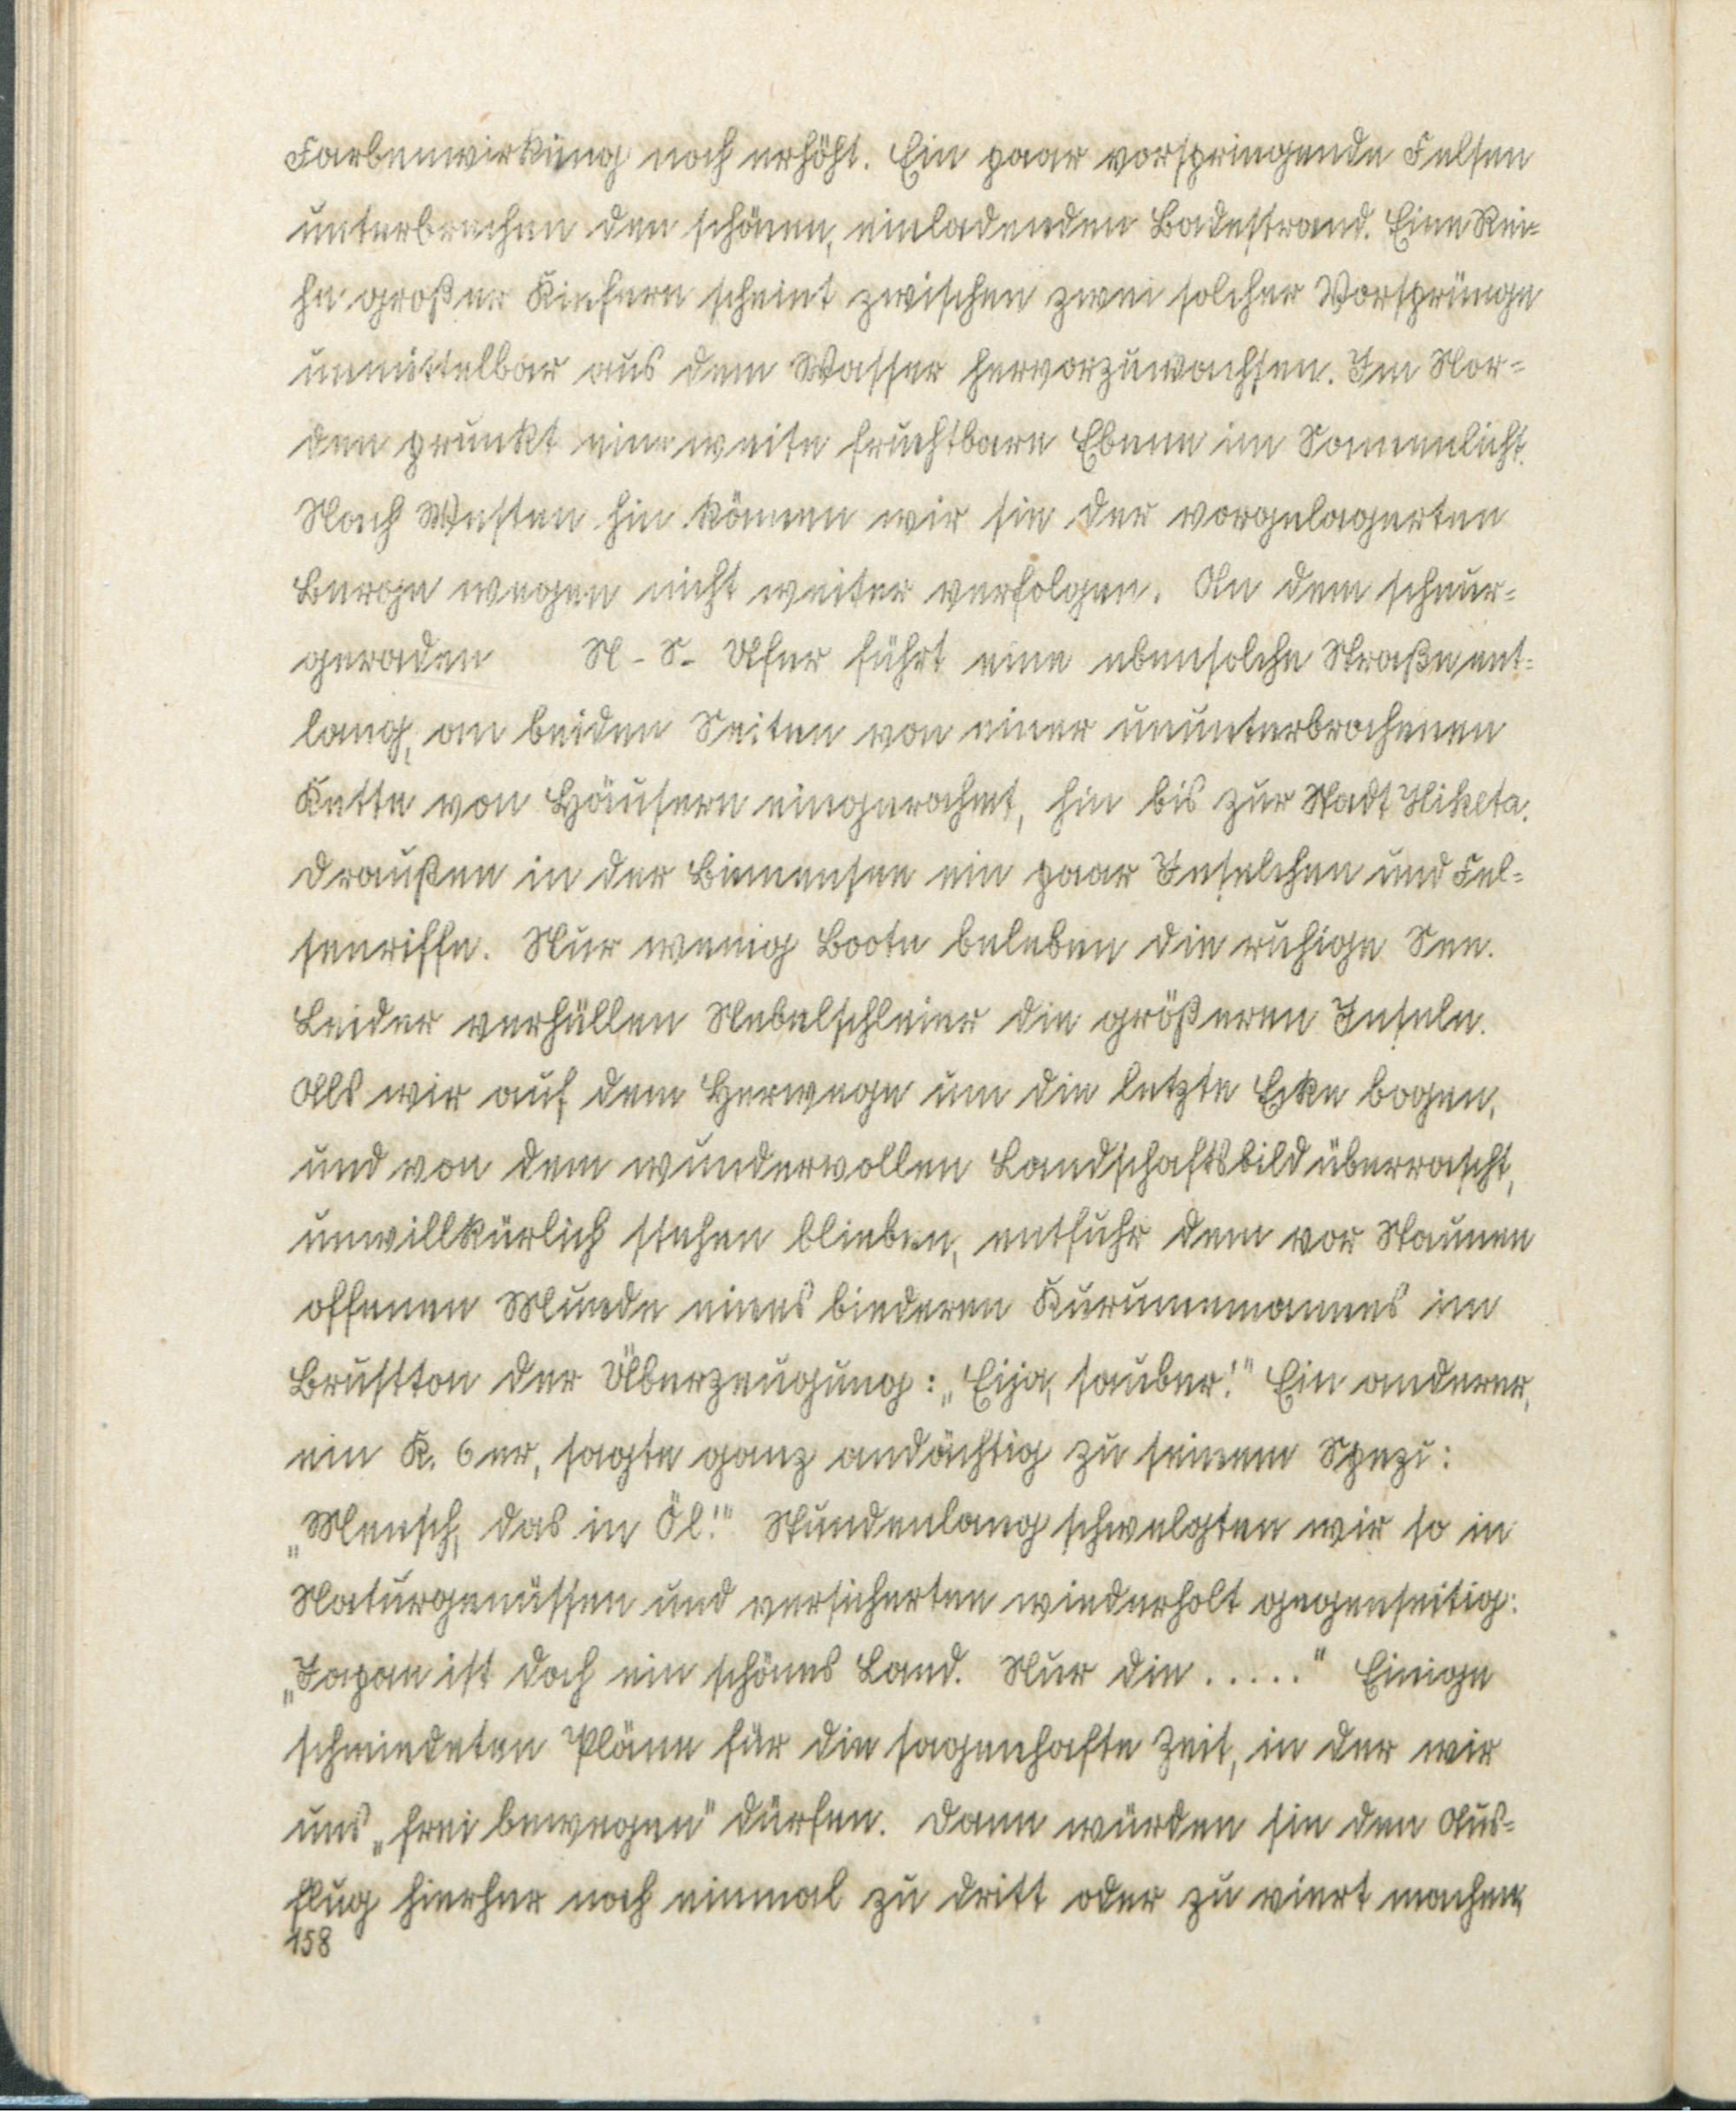 Farbenwirkung noch erhöht. Ein paar vorspringende Felsen
unterbrechen den schönen, einladenden Badestrand. Eine Rei-
he großer Kiefern scheint zwischen zwei solcher Vorsprünge
unmittelbar aus dem Wasser hervorzuwachsen. Im Nor-
den prunkt eine weite fruchtbare Ebene im Sonnenlicht.
Nach Westen hin können wir sie der vorgelagerten
Berge wegen nicht weiter verfolgen. An dem schnur-
geraden N-S- Ufer führt eine ebensolche Straße ent-
lang, an beiden Seiten von einer ununterbrochenen
Kette von Häusern eingerahmt, hin bis zur Stadt Hiketa.
Draußen in der Binnensee ein paar Inselchen und Fel-
senriffe. Nur wenig Boote beleben die ruhige See.
Leider verhüllen Nebelschleier die größeren Inseln.
Als wir auf dem Herwege um die letzte Ecke bogen,
und von dem wundervollen Landschaftsbild überrascht,
unwillkürlich stehen blieben, entfuhr dem vor Staunen
offenen Munde eines biederen Kurumemannes im
Brustton der Überzeugung: „Eija, sauber!" Ein anderer,
ein K. 6er, sagte ganz andächtig zu seinem Spezi:
„Mensch, das in Öl!" Stundenlang schwelgten wir so in
Naturgenüssen und versicherten wiederholt gegenseitig:
„Japan ist doch ein schönes Land. Nur die . . . . ." Einige
schmiedeten Pläne für die sagenhafte Zeit, in der wir
uns „frei bewegen" dürfen. Dann würden sie den Aus-
flug hierher noch einmal zu dritt oder zu viert machen,
158